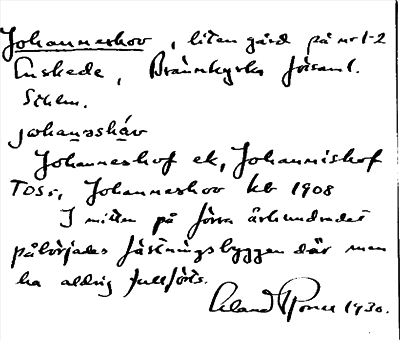 Johanneshov, liten gård på nr 1-2
Enskede, Brännkyrka församl.
Sthlm.
johanəshåv
Johanneshof ek, Johannishof
TOSS, Johanneshov kb 1908
I mitten på förra århundradet
påbörjades fästningsbyggen där men
ha aldrig fullförts.
Erland 1930.